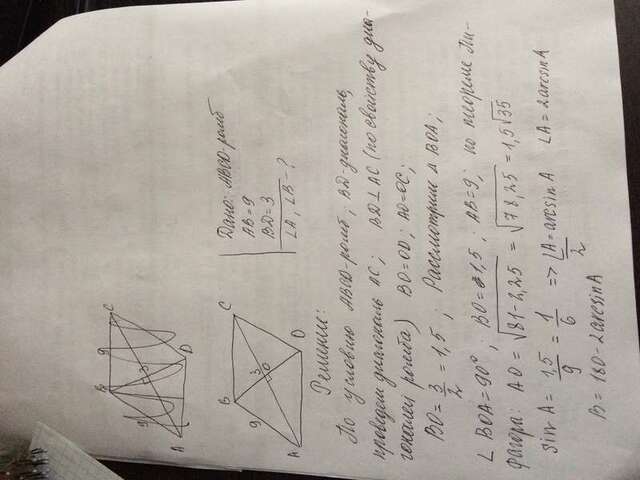 B
9
C
9
3
A
D
B
C
9
3
O
A
D
Дано: ABCD-ромб
AB=9
BD=3
∠A, ∠B-?
Решение:
По условию ABCD-ромб, BD-диагональ,
проведем диагональ AC; BD⊥AC (по свойству диа-
гоналей ромба) BO=OD; AO=OC;
BO=3/2=1,5; Рассмотрим △ BOA;
∠BOA=90°; BO=1,5; AB=9; по теореме Пи-
фагора: AO=√81-2,25=√78,25=1,5√35
sin A=1,5/9=1/6 => ∠A/2=arcsin A ∠A=2arcsin A
B=180-2arcsin A